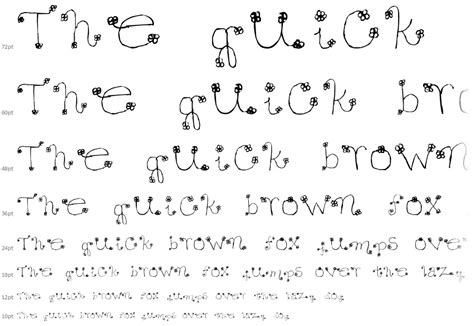 72pt The quick
60pt The quick bro
48pt The quick brown
36pt The quick brown fox
24pt The quick brown fox jumps over
18pt The quick brown fox jumps over the lazy
12pt The quick brown fox jumps over the lazy dog
10pt The quick brown fox jumps over the lazy dog